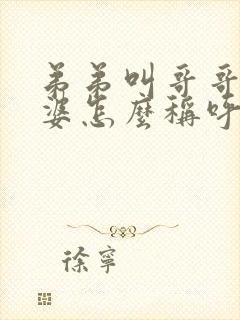 弟弟叫哥哥
婆怎麼稱呼
徐寧